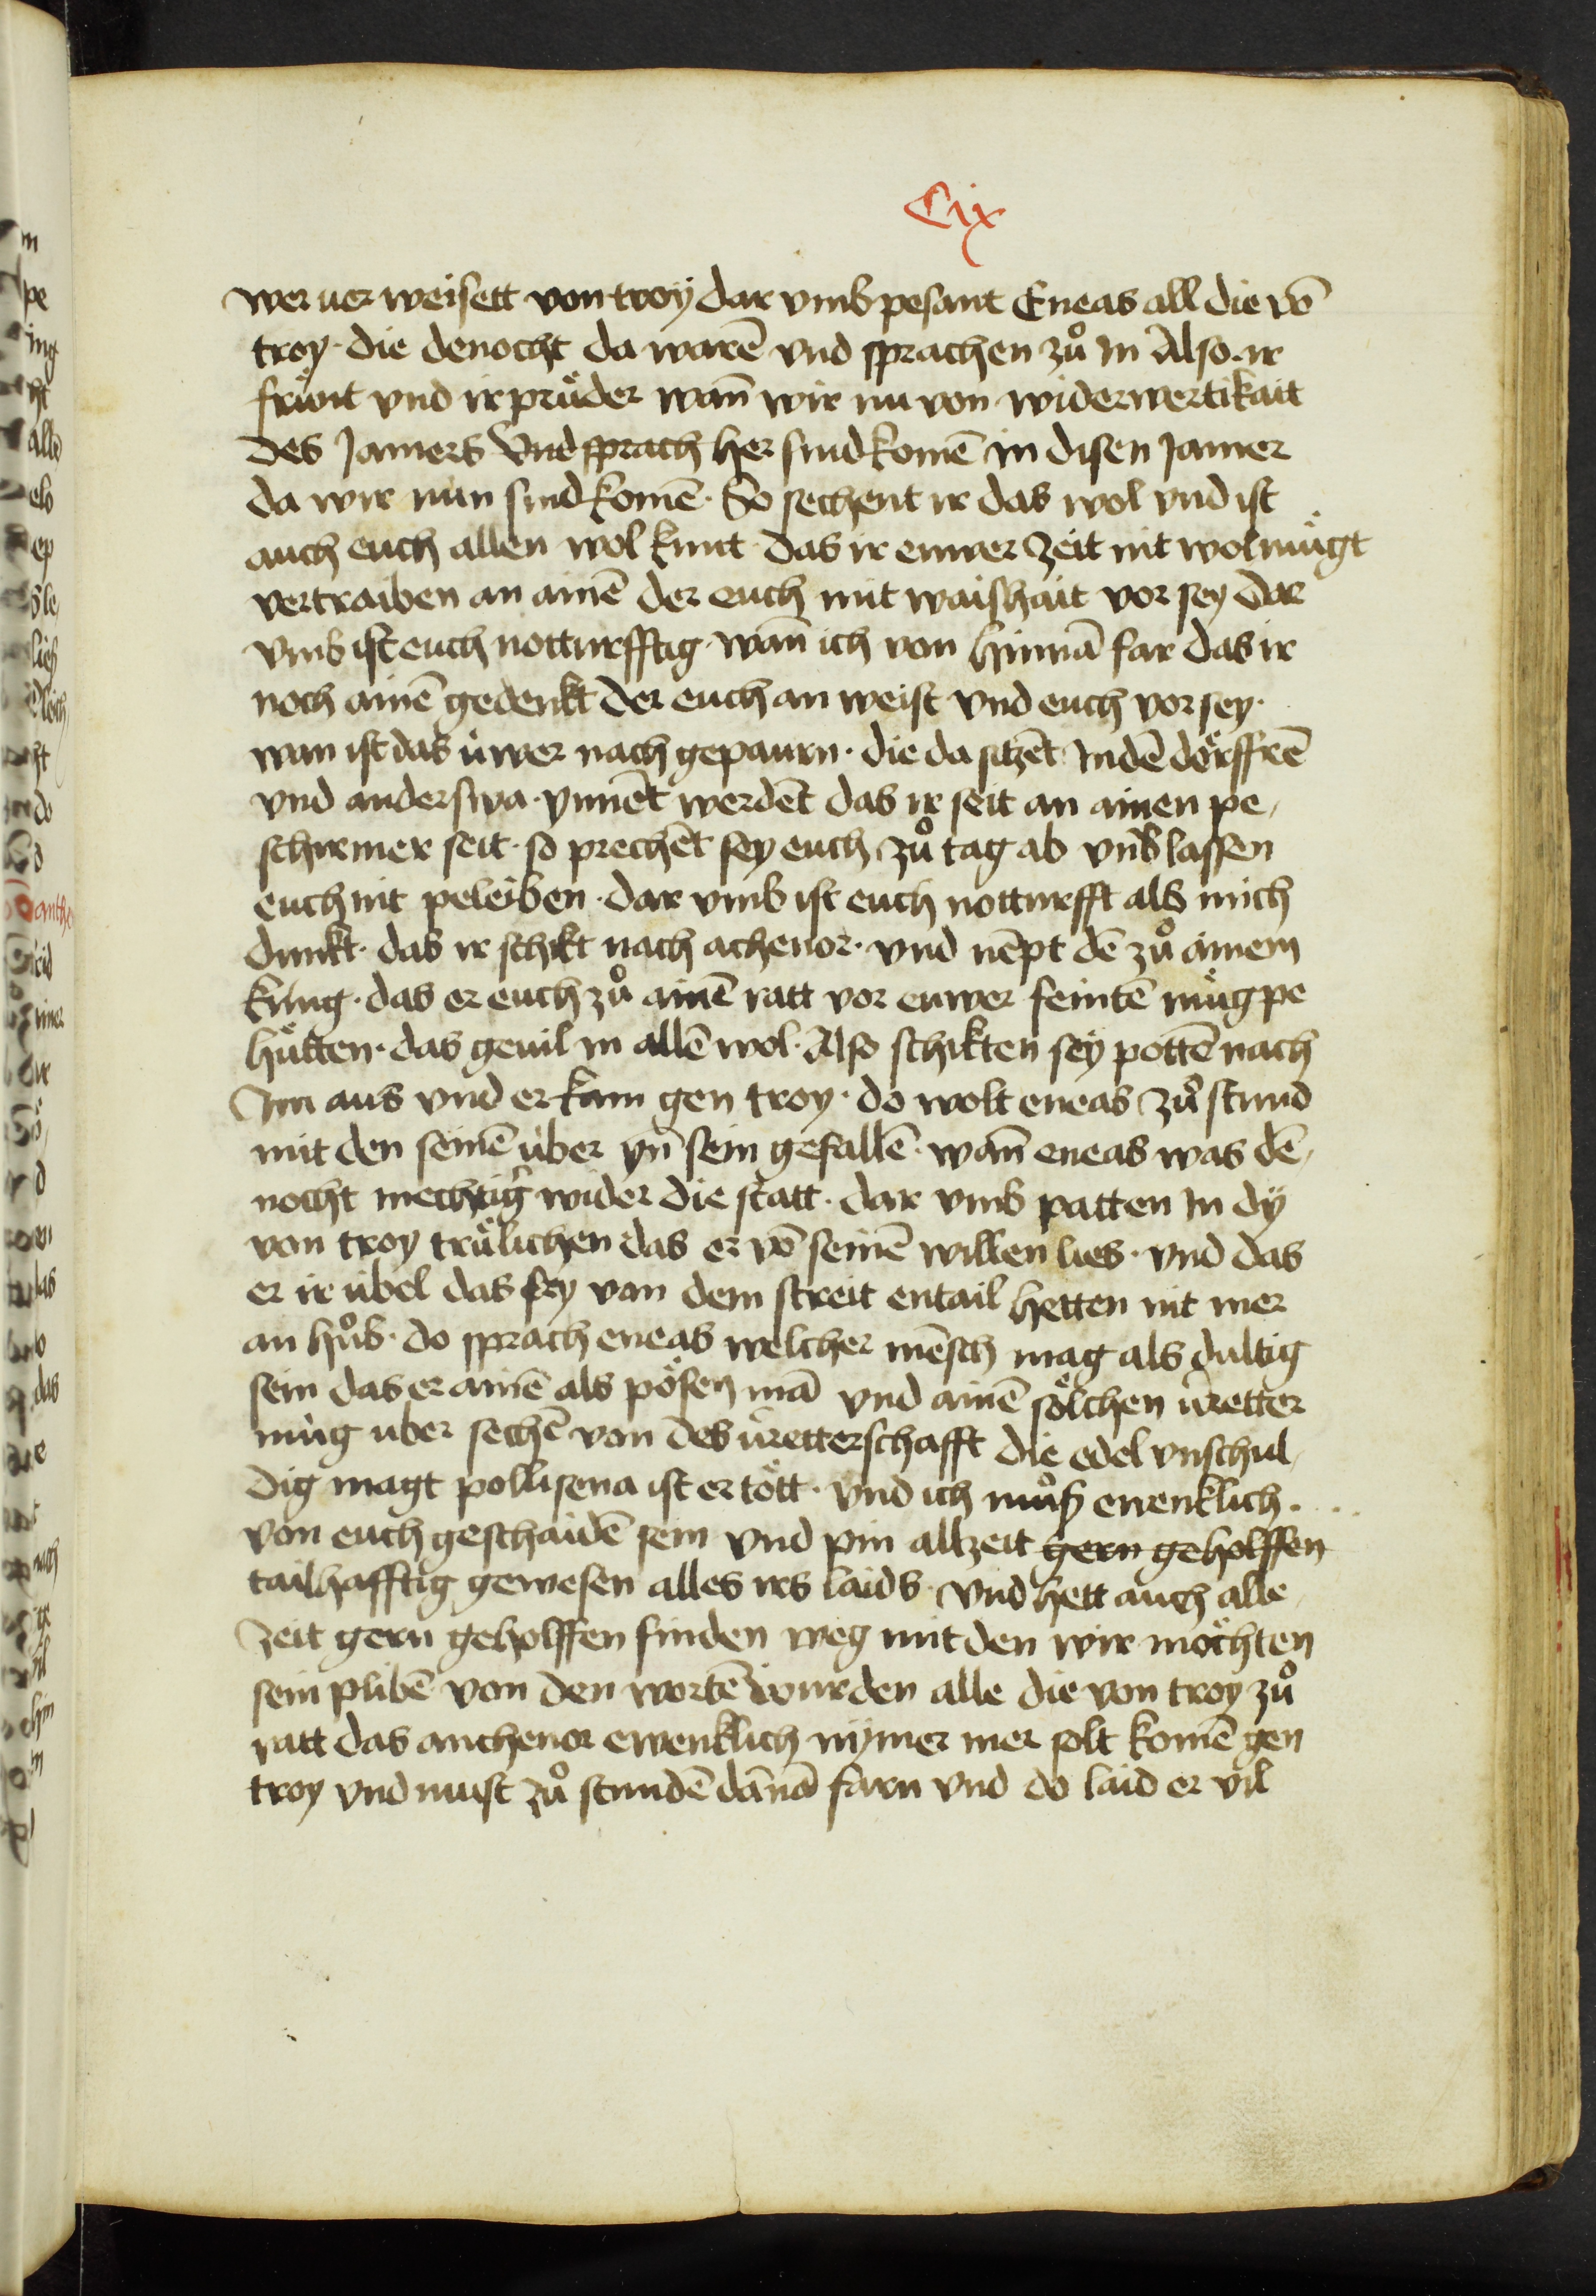 Cix
wer uer weisett von troÿ dar vmb pesant Eneas all die vō
troy · die denocht da warē vnd sprachen zů In Also · ir
frünt vnd ir prüder wañ wir nu von widerwertikait
des Jamers Vnd sprach her sind komē in disen Jamer
da wir nun sind komē · So sechent ir das wol vnd ist
auch euch allen wol kunt · das ir euwer zeit nit wol mügt
vertraiben an ainē der euch mit waishait vor sey Dar
vmb ist euch notturfftig · wañ ich von hinnā far das ir
noch ainē gedenkt der euch an weist vnd euch vor sey ·
wan ist das üwer nach gepaurn · die da sitzēt Indē dörffrē
vnd anderswa · ynnēt werdēt das ir seit an ainen pe
schirmer seit · so prechēt sey euch zů tag ab vnd lassen
euch nit peleiben · dar vmb ist euch notturfft als mich
dunkt · das ir schikt nach achenor · vnd nēpt dē zů ainem
küng · das er euch zů ainē ratt vor euwer feintē müg pe
hütten · das geuil in allē wol · Also schikten seÿ pottē nach
Im aus vnd er kam gen troy · do wolt eneas zů stund
mit den seinē über yn sein gefallē · wañ eneas was dē
nocht mechtig wider die statt · dar vmb patten In dÿ
von troy trülichen das er vō seinē willen lies · vnd das
er ir übel das sey von dem streit entail hetten nit mer
an hůb · do sprach eneas welcher mēsch mag als dultig
sein das er ainē als pösen mā vnd ainē sölchen üretter
müg uber sechē von des üretterschafft die edel vnschul
dig magt pollisena ist er tött · vnd ich můß ewenklich ·
von euch geschaidē sein vnd pin allzeit gern geholffen
tailhafftig gewesen alles irs laids · vnd hett auch alle
zeit gern geholffen finden weg mit den wir möchten
sein plibē von den wortē wurden alle die von troy zů
ratt das anchenor ewenklich nÿmer mer solt komē gen
troy vnd must zů stundē dānā farn vnd do laid er vil